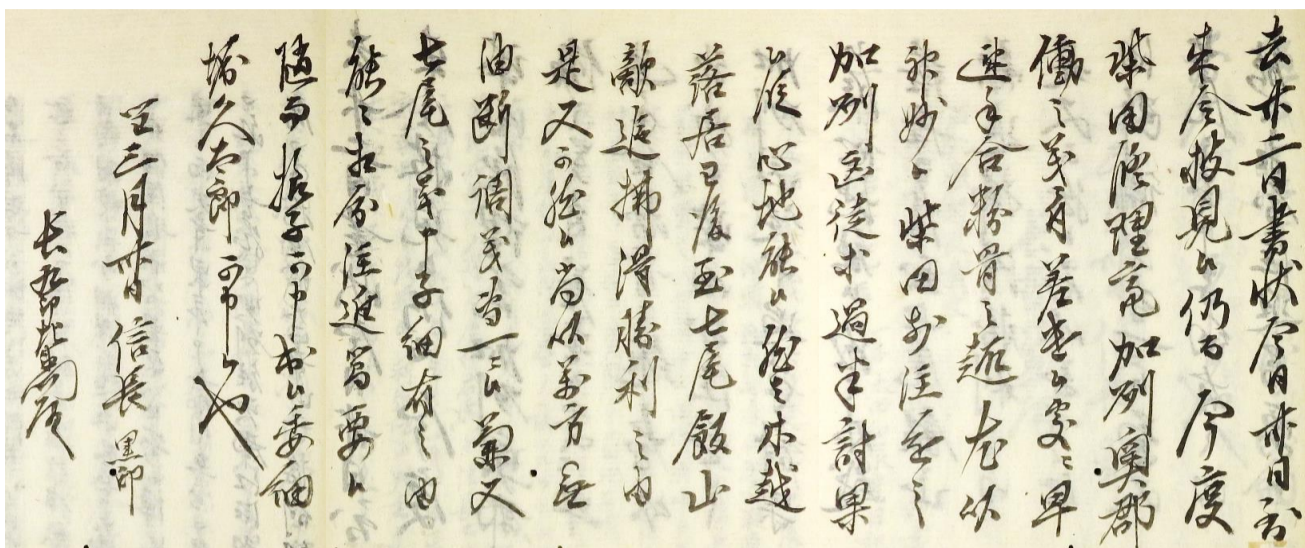 去廿二日書状今月廿日到
来令披見候仍而今度
柴田修理亮加州奥郡
働之義有差遣候処ニ早
速手合粉骨之趣尤以
神妙ニ候柴田お注進之
加州凶徒等過半討果
候段心地能候然者木越
落居已後至七尾飯山
敵追拂得勝利之由
是又可然候尚以万方無
油断調義専一ニ候兼又
七尾之義申子細有之由
能々相番注進簡要候
随而於子可申出候委細
堀久太郎可申候也
壬三月廿日 信長 黒印
長九郎左衛門殿